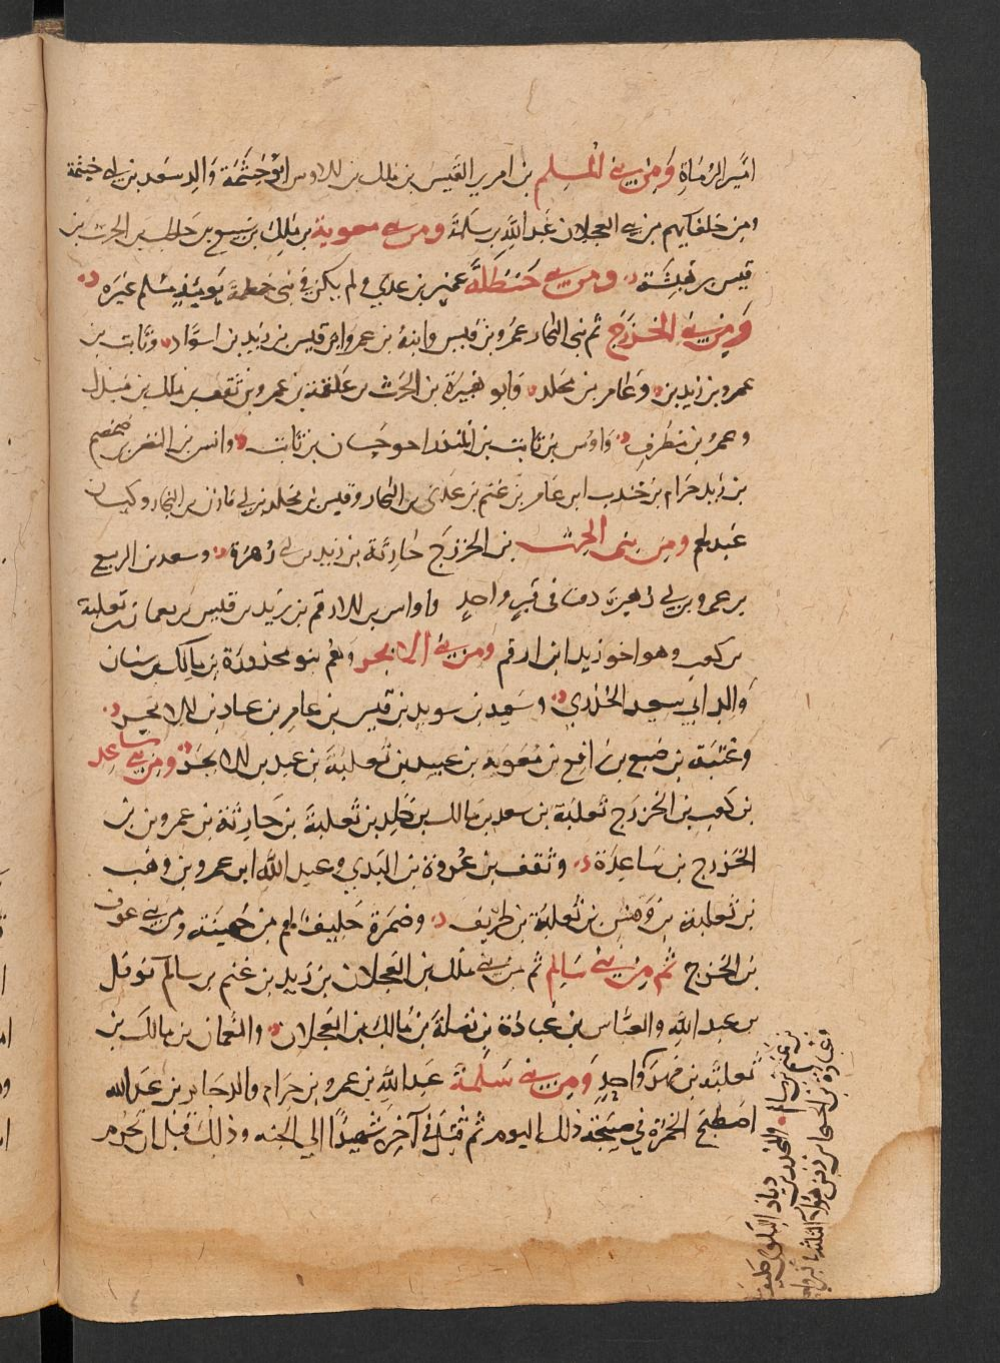 امير الرماة ومن بني المسلم بن امري القيس بن ملك بن الاوس ابو خثمة والد سعد بن ابي خيثمة
ومن حلفائهم من بني العجلان عبد الله بن سلمة ومن بني معوية بن ملك بن سبيع بن حاطب بن الحرث بن
قيس بن هيشة ومن بني حنظلة عمير بن عدي ولم يكن في بني خطمة يومئذ مسلم غيره
ومن بني الخزرج ثم بني النجار عمرو بن قيس وابنه بن عمرو ابن قيس بن زيد بن اسواد وثابت بن
عمرو بن زيد بن وعامر بن مخلد وابو هبيرة بن الحرث بن علقمة بن عمرو بن ثقف بن ملك بن مبذل
وعمر بن مطرف واوس بن ثابت بن المنذر اخو حسان بن ثابت وانس بن النضر بن ضمضم
بن زيد حرام بن جندب ابن عامر بن غنم بن عدي بن النجار وقيس بن مخلد بن بني مازن بن النجار وكيسان
عبد لهم ومن بني الحرث بن الخزرج خارجة بن زيد بن ابي زهرة وسعد بن الربيع
بن عمرو بن ابي زهرة دفنا في قبر واحد واوس بن الارقم بن زيد بن قيس بن نعمان بن ثعلبة
بن كعب وهو اخو زيد ابن ارقم ومن بني الابجر وهم بنو مخدورة بن مالك بن سنان
والد ابي سعيد الخدري وسعيد بن سويد بن قيس بن عامر بن عباد بن الابجر
وعتبة بن ضبع بن رافع بن معوية بن عبيد بن ثعلبة بن عبد بن الابجر ومن بني ساعد
بن كعب بن الخزرج ثعلبة بن سعد بن مالك بن خلد بن ثعلبة بن حارثة بن عمرو بن بن
الخزرج بن ساعدة وثقف بن عروة بن البدي وعبد الله ابن عمرو بن وهب
بن ثعلبة بن وهش بن ثعلبة بن طريف وضمرة حليف لهم من جهينة ومن بني عوف
بن الخزرج ثم من بني سالم ثم من بني ملك بن العجلان بن زيد بن غنم بن سالم نوفل
بن عبد الله والعباس بن عبادة بن نضلة بن مالك بن العجلان والنعمان بن مالك بن
ثعلبة بن فهد واحد ومن بني سلمة عبد الله بن عمرو بن حرام والد جابر بن عبد الله
اصطبح الخمرة في صبيحة ذلك اليوم ثم قتل في آخره شهيدا الي الجنه وذلك قبل ان تحرم
بن غنم بن سالم والمجذر بن دياد البلوي حليف
وعبادة بن الحسحاس دفن هؤلاء الثلثة في قبر واحد